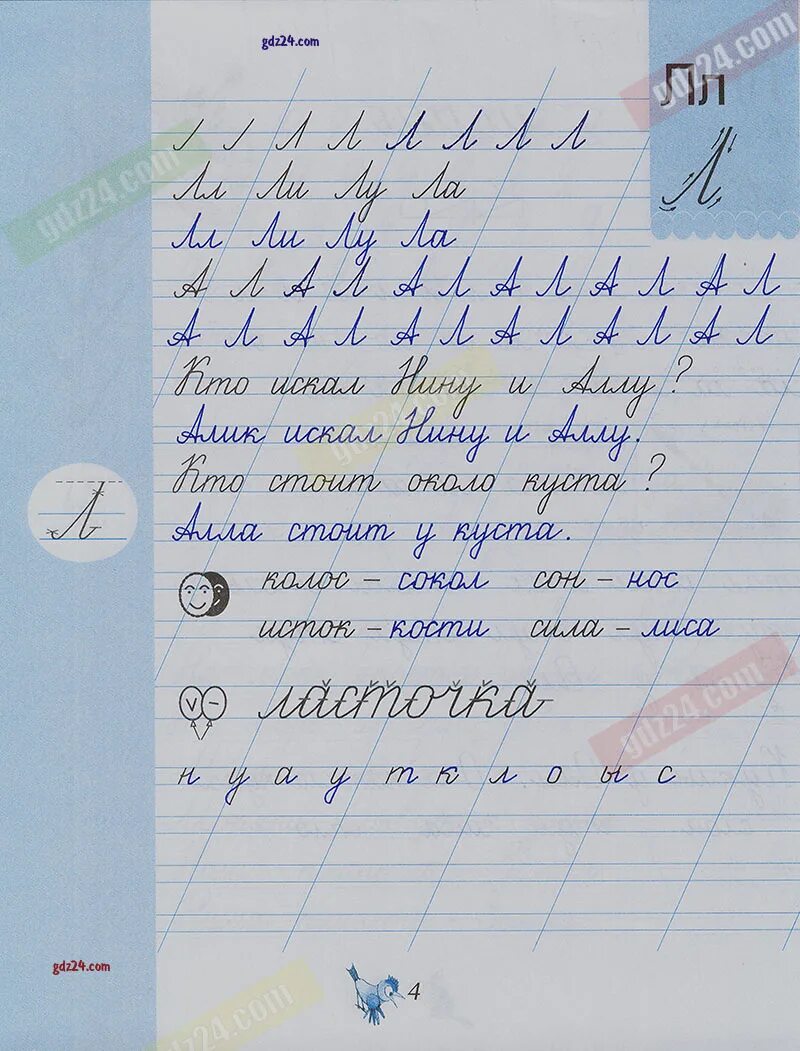 gdz24.com
gdz24.com
Лл
Л
gdz24.com
Л Л Л Л Л Л
Лл Ли Лу Ла
Лл Ли Лу Ла
А Л А Л А Л А Л А Л А Л
А Л А Л А Л А Л А Л А Л
Кто искал Нину и Аллу?
Алик искал Нину и Аллу.
gdz24.com
Кто стоит около куста?
Л
Алла стоит у куста.
колос – сокол сон – нос
исток – кости сила – лиса
ласточка
gdz24.com
н у а у т к л о ы с
gdz24.com
4
gdz24.com